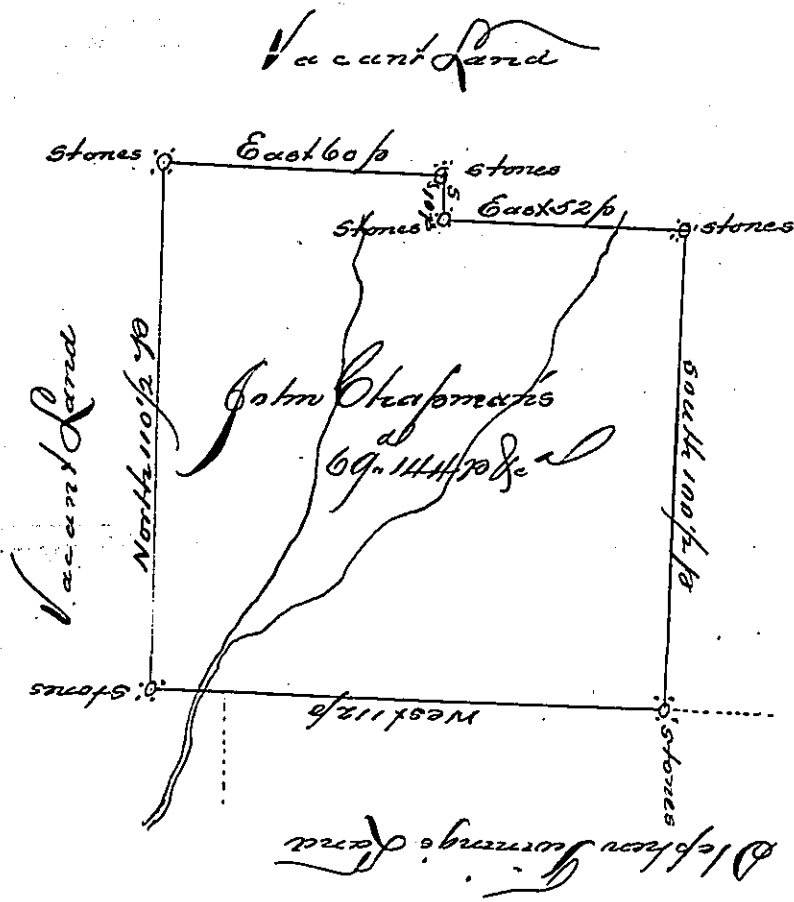 Vacant Land
Stones
East 60 p
stones
S 10 p
Stones
East 52 p
stones
Vacant Land
North 110 1/2 p
John Chapman's
69a. 144 p &c
South 100 1/2 p
Stones
West 112 p
Stones
Stephen Twining's Land